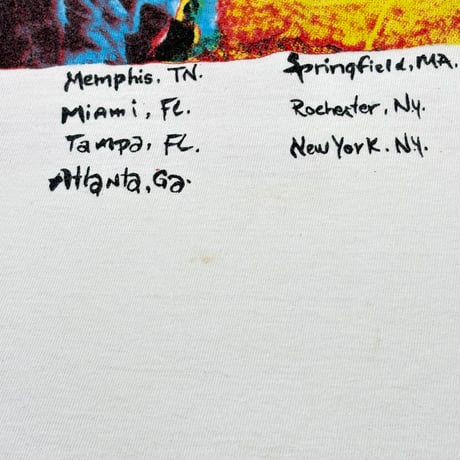 Memphis, TN.
Miami, FL.
Tampa, FL.
Atlanta, Ga.
Springfield, MA.
Rochester, Ny.
New York. NY.